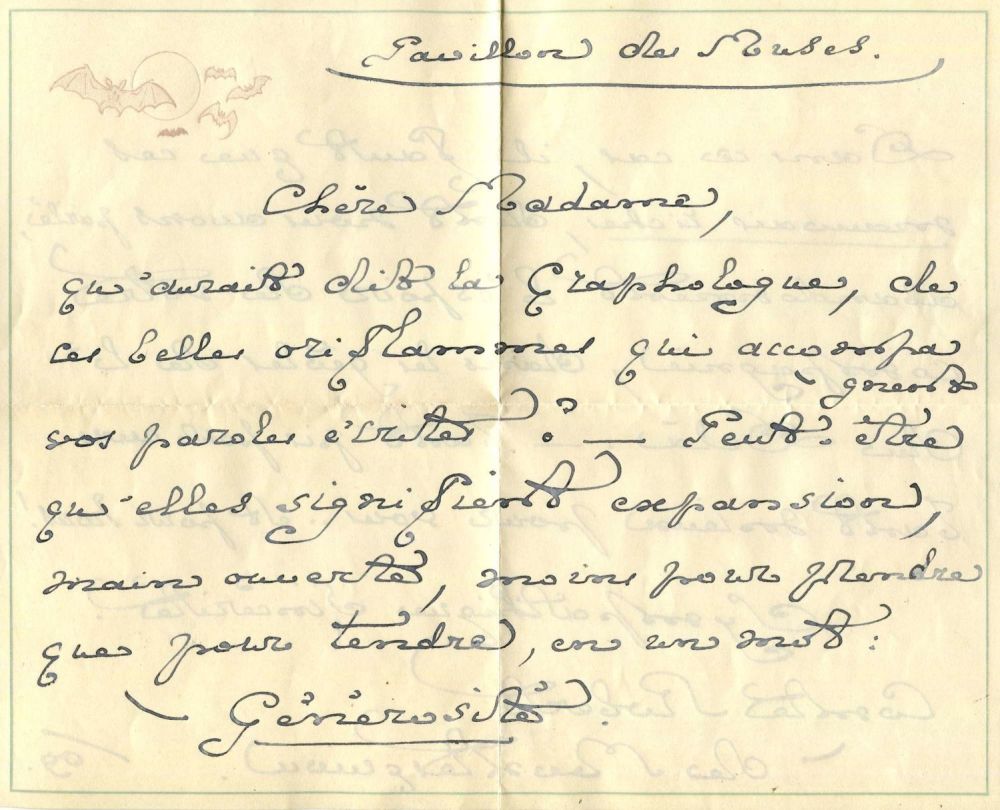 Pavillon des Muses.
Chère Madame,
qu'aurait dit la Graphologue, de
ces belles oriflammes qui accompa
gnent
vos paroles écrites ? — Peut-être
qu'elles signifient expansion,
main ouverte, moins pour prendre
que pour tendre, en un mot :
Générosité.